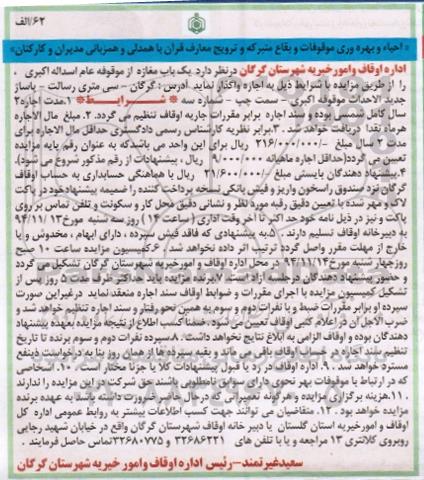 ۶۲/الف
« احیاء و بهره وری موقوفات و بقاع متبرکه و ترویج معارف قرآن با همدلی و همزبانی مدیران و کارکنان»
اداره اوقاف وامور خیریه شهرستان گرگان درنظر دارد یک باب مغازه از موقوفه عام اسداله اکبری
را از طریق مزایده با شرایط ذیل به اجاره واگذار نماید. آدرس : گرگان – سی متری رسالت – پاساژ
جدید الاحداث موقوفه اکبری – سمت چپ – شماره سه * شـــرایـــط* ۱.مدت اجاره۲
سال کامل شمسی بوده و سند اجاره برابر مقررات جاریه اوقاف تنظیم می گردد. ۲. مبلغ مال الاجاره
هرماه نقدا دریافت خواهد شد . ۳.برابر نظریه کارشناس رسمی دادگستری حداقل مال الاجاره برای
مدت ۲ سال مبلغ ۲۱۶/۰۰۰/۰۰۰ ریال برای این واحد می باشدکه به عنوان رقم پایه مزایده
تعیین می گردد(حداقل اجاره ماهیانه ۹/۰۰۰/۰۰۰ ریال ، پیشنهادات از رقم مذکور شروع می شود).
۴.پیشنهاد دهندگان بایستی مبلغ ۲۱/۶۰۰/۰۰۰ ریال با هماهنگی حسابداری به حساب اوقاف
گرگان نزد صندوق راسخون واریز و فیش بانکی نسخه پرداخت کننده را ضمیمه پیشنهادخود در پاکت
لاک و مهر شده با تعیین دقیق رقبه مورد نظر و نشانی دقیق محل کار و سکونت و تلفن تماس بر روی
پاکت و نیز در ذیل نامه خود حداکثر تا آخر وقت اداری ( ساعت ۱۴) روز سه شنبه مورخ ۹۴/۱۱/۱۳
به دبیرخانه اوقاف تسلیم دارند . ۵.به پیشنهادی که فاقد فیش سپرده ، دارای ابهام ، مخدوش و یا
خارج از مهلت مقرر واصل گردد ترتیب اثر داده نخواهد شد . ۶.کمیسیون مزایده ساعت ۱۰ صبح
روزچهار شنبه مورخ۹۴/۱۱/۱۴ در محل اداره اوقاف و امورخیریه شهرستان گرگان تشکیل می گردد
و حضور پیشنهاد دهندگان درجلسه آزاد است .۷.برنده مزایده باید حداکثر ظرف مدت ۵ روز پس از
تشکیل کمیسیون مزایده با اجرای مقررات و ضوابط اوقاف سند اجاره منعقد نماید درغیر این صورت
سپرده او برابر مقررات ضبط و با نفرات دوم و سوم به همین نحو رفتار و سند اجاره تنظیم خواهد شد و
ضرب الاجل آن در اعلام کتبی اوقاف تعیین می شود . ضمنا کسب اطلاع از نتیجه مزایده بعهده پیشنهاد
دهندگان بوده و اوقاف الزامی به ابلاغ نتایج نخواهد داشت. ۸.سپرده نفرات دوم و سوم برنده تا تاریخ
تنظیم سند اجاره در حساب اوقاف باقی می ماند و بقیه سپرده ها از همان روز بنا به درخواست ذینفع
مسترد خواهد شد . ۹. اداره اوقاف در رد یا قبول پیشنهادات کلا یا جزئا مختار است . ۱۰. اشخاصی
که در ارتباط با موقوفات بهر نحوی دارای سوابق نامطلوبی باشند حق شرکت در این مزایده را ندارند
. ۱۱.هزینه برگزاری مزایده و هرگونه تعمیراتی که درحال حاضر ضرورت داشته باشد به عهده برنده
مزایده خواهد بود . ۱۲. متقاضیان می توانند جهت کسب اطلاعات بیشتر به روابط عمومی اداره کل
اوقاف و امورخیریه استان گلستان یا دبیر خانه اوقاف شهرستان گرگان واقع در خیابان شهید رجایی
روبروی کلانتری ۱۳ مراجعه و یا با تلفن های ۳۲۶۸۶۲۲۱ و ۳۲۶۸۰۷۷۵ تماس حاصل فرمایند .
سعیدغیرتمند–رئیس اداره اوقاف وامور خیریه شهرستان گرگان